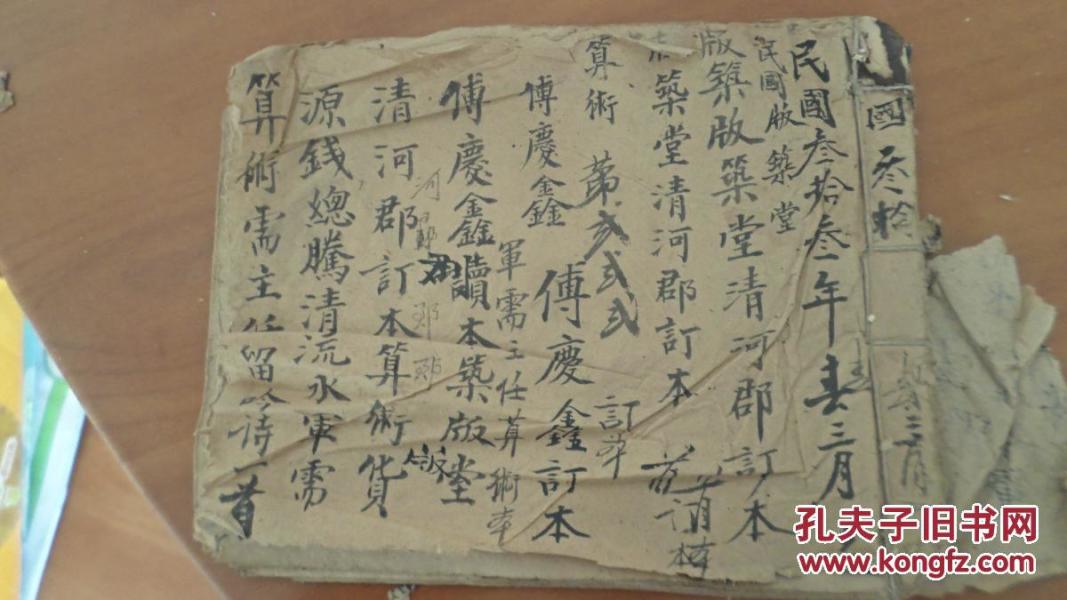 國叁拾
三月
民國叁拾叁年春三月
民國版築堂
版築版築堂清河郡訂本
築堂清河郡訂本
算術 第弍弍弍 訂本
傅慶鑫 傅慶鑫訂本
軍需主任算術本
傅慶鑫讀本築版堂
河郡 郡 郡
清河郡訂本算術貨
源錢總騰清流水軍需
算術需主任留吟诗一首
孔夫子旧书网
www.kongfz.com